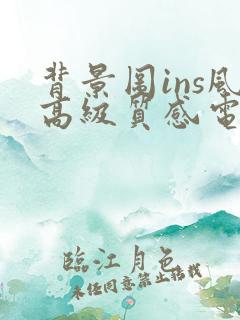 背景图ins风
高级质感电
臨江月色
未经同意禁止搭载